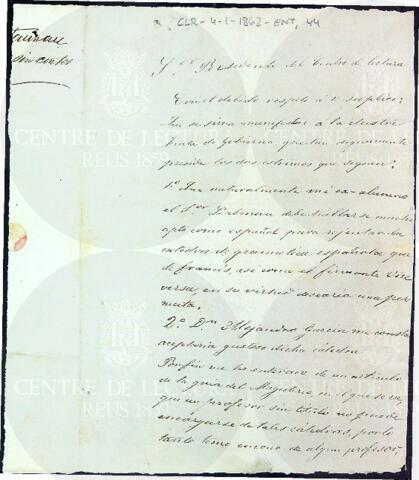 CLR-4-1-1862-ENT, 44
sin curso
Sor. Presidente del Centro de lectura
Con el debido respeto á V. suplico:
Que se sirva manifestar á la ilustre
Junta de Gobierno que tan dignamente
preside los dos estremos que siguen:
1º. Que naturalmente mi ex-alumno
el Sor. Dalmau debe hallarse mucho
apto como español para rejentar la
catedra de gramatica española que
de francés, asi como el firmante vice
versa, en su virtud desearia una per
muta.
2º. Dn. Alejandro Garcia me consta
aceptaria gustoso dicha cátedra.
Por fin me he enterado de un articulo
de la guia del Magisterio, en el que se ve,
que un profesor sin titulo no puede
encargarse de tales cátedras, por lo
tanto temo encono de algun profesor,
CENTRE DE LECTURA
REUS 1859